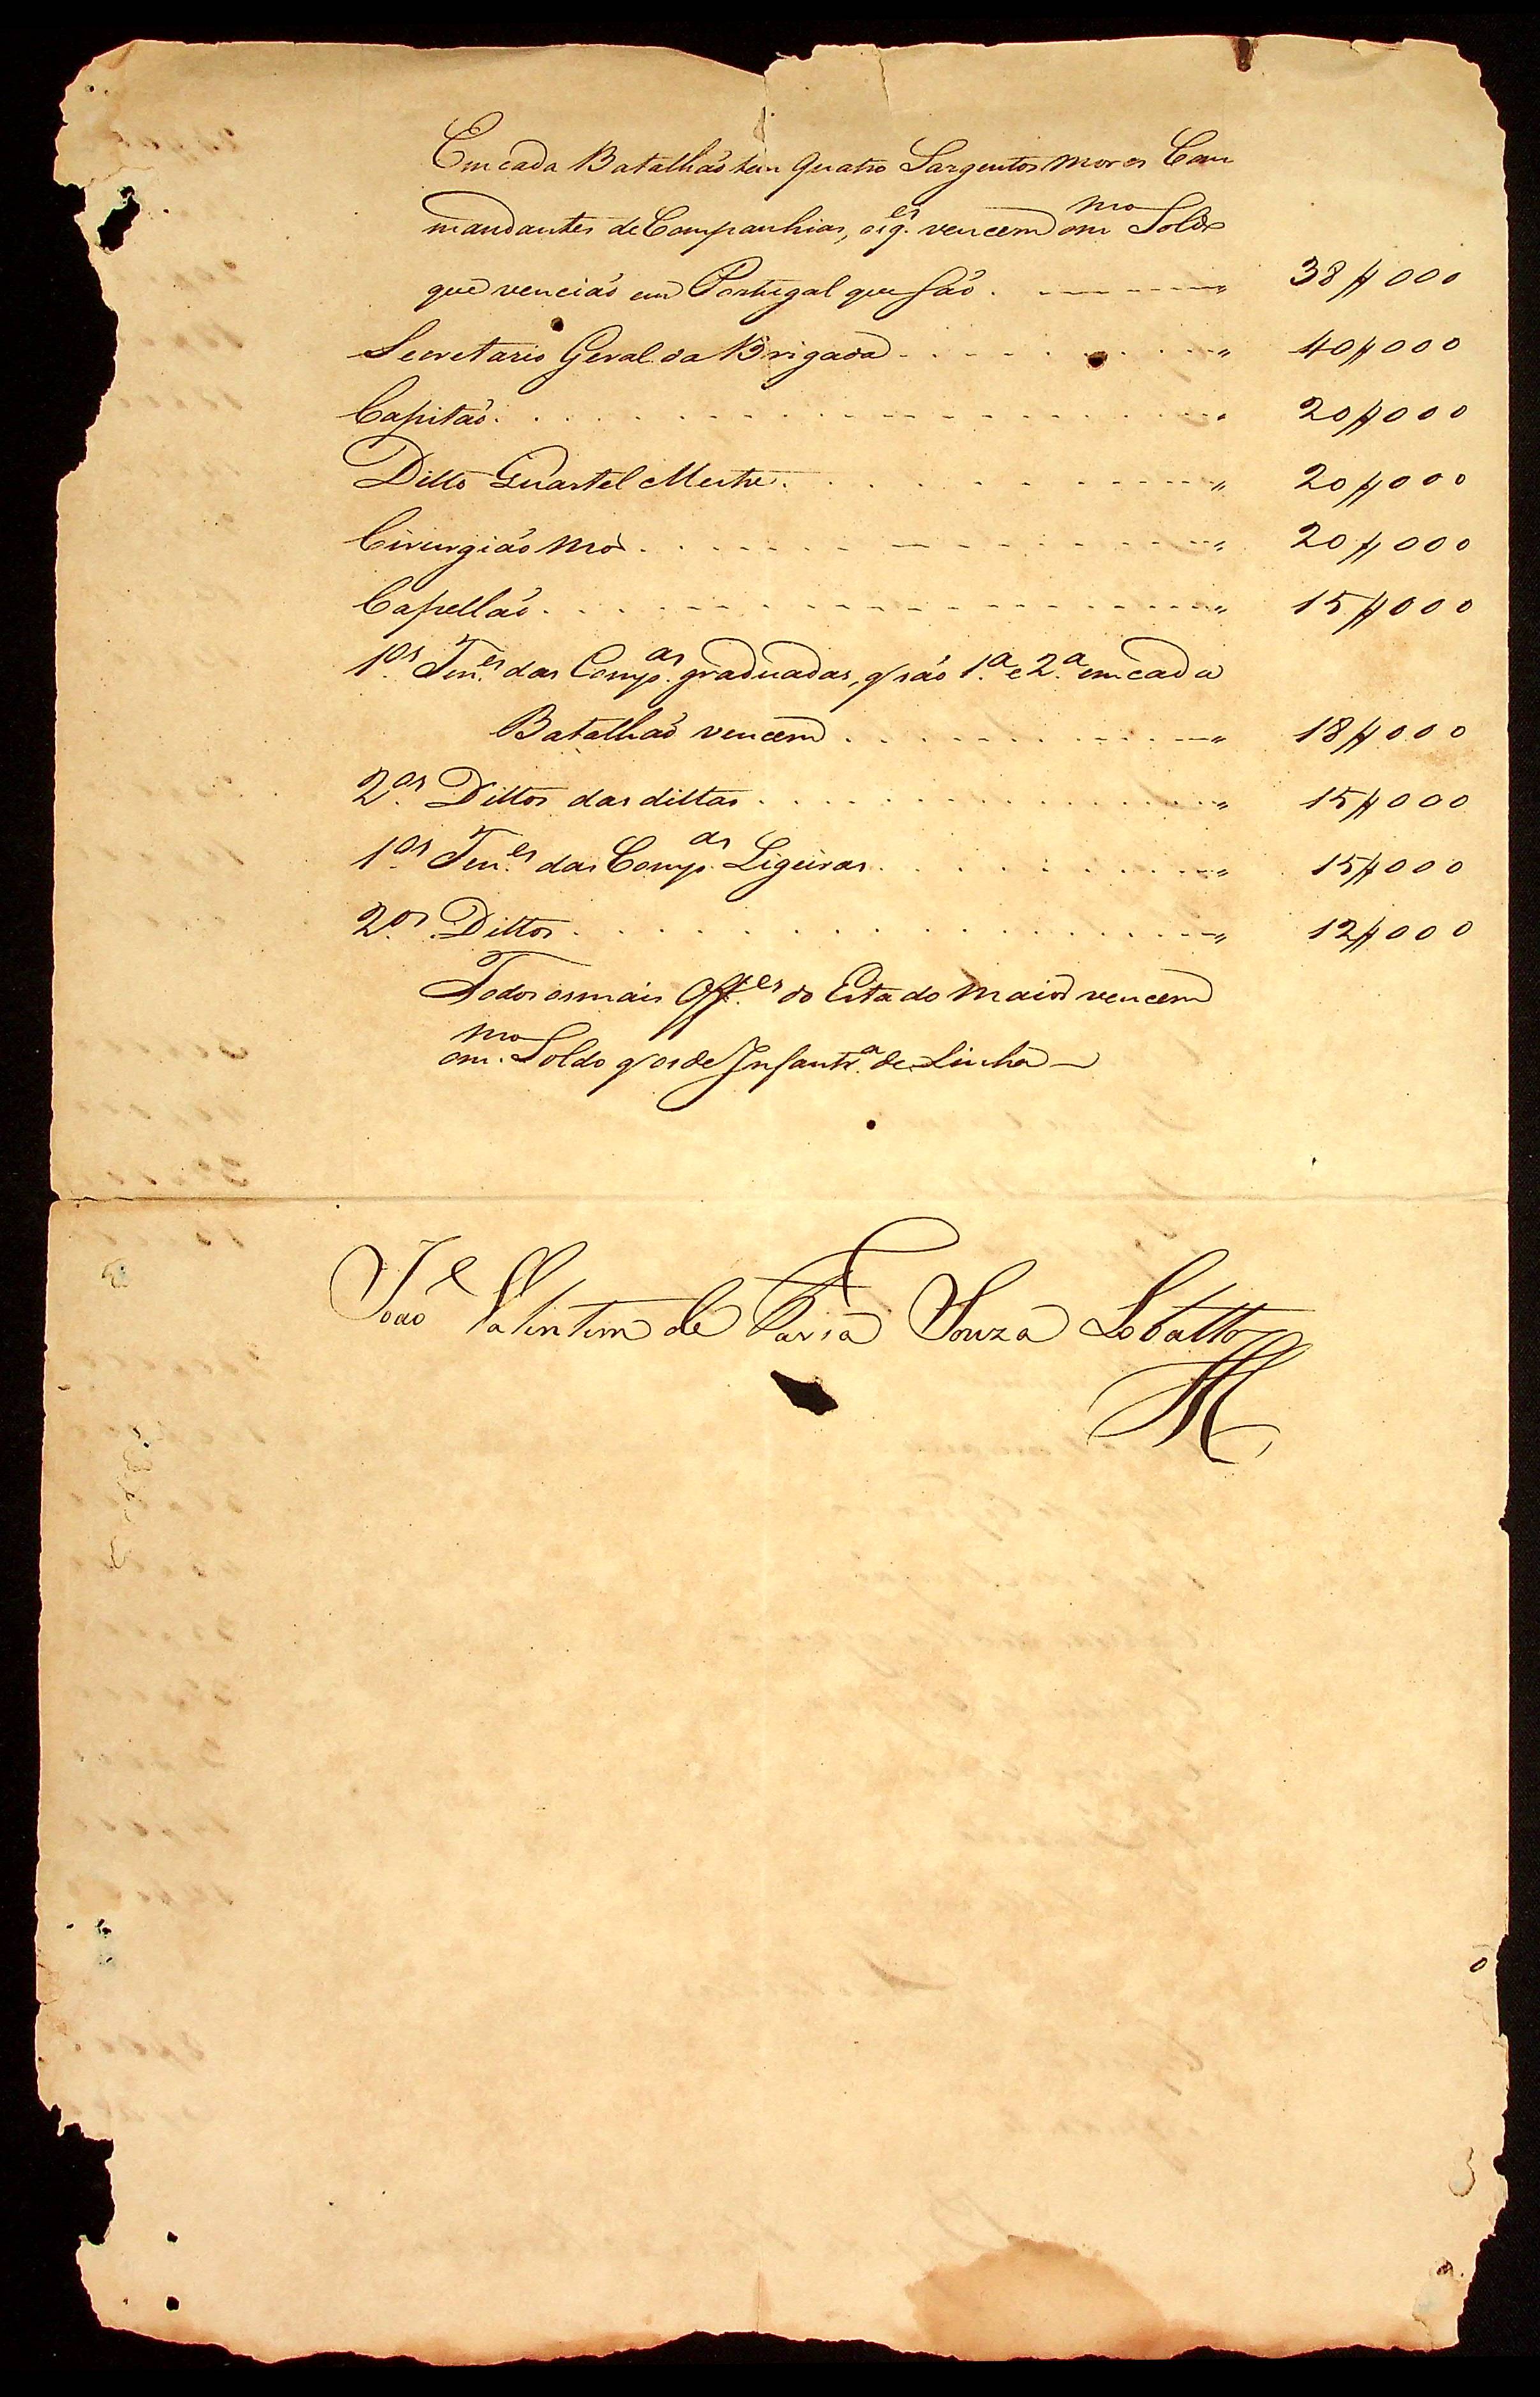 Em cada Batalhaõ tem quatro Sargentos mores Com
mandantes de Companhias, os q.es vencem o m.mo Soldo
que venciaõ em Portugal que saõ . . . . . " 38$000
Secretario Geral da Brigada . . . . . " 40$000
Capitaõ . . . . . " 20$000
Ditto Quartel Mestre . . . . . " 20$000
Cirurgiaõ Mór . . . . . " 20$000
Capellaõ . . . . . " 15$000
1.os Ten.es das Comp.as graduadas, q saõ 1.a e 2.a em cada
Batalhaõ vencem . . . . . " 18$000
2.os Dittos das dittas . . . . . " 15$000
1.os Ten.es das Comp.as Ligeiras . . . . . " 15$000
2.os Dittos . . . . . " 12$000
Todos os mais Off.es do Estado Maior vencem
o m.mo Soldo q os de Infantr.a de Linha
João Valentim de Faria Souza Lobatto